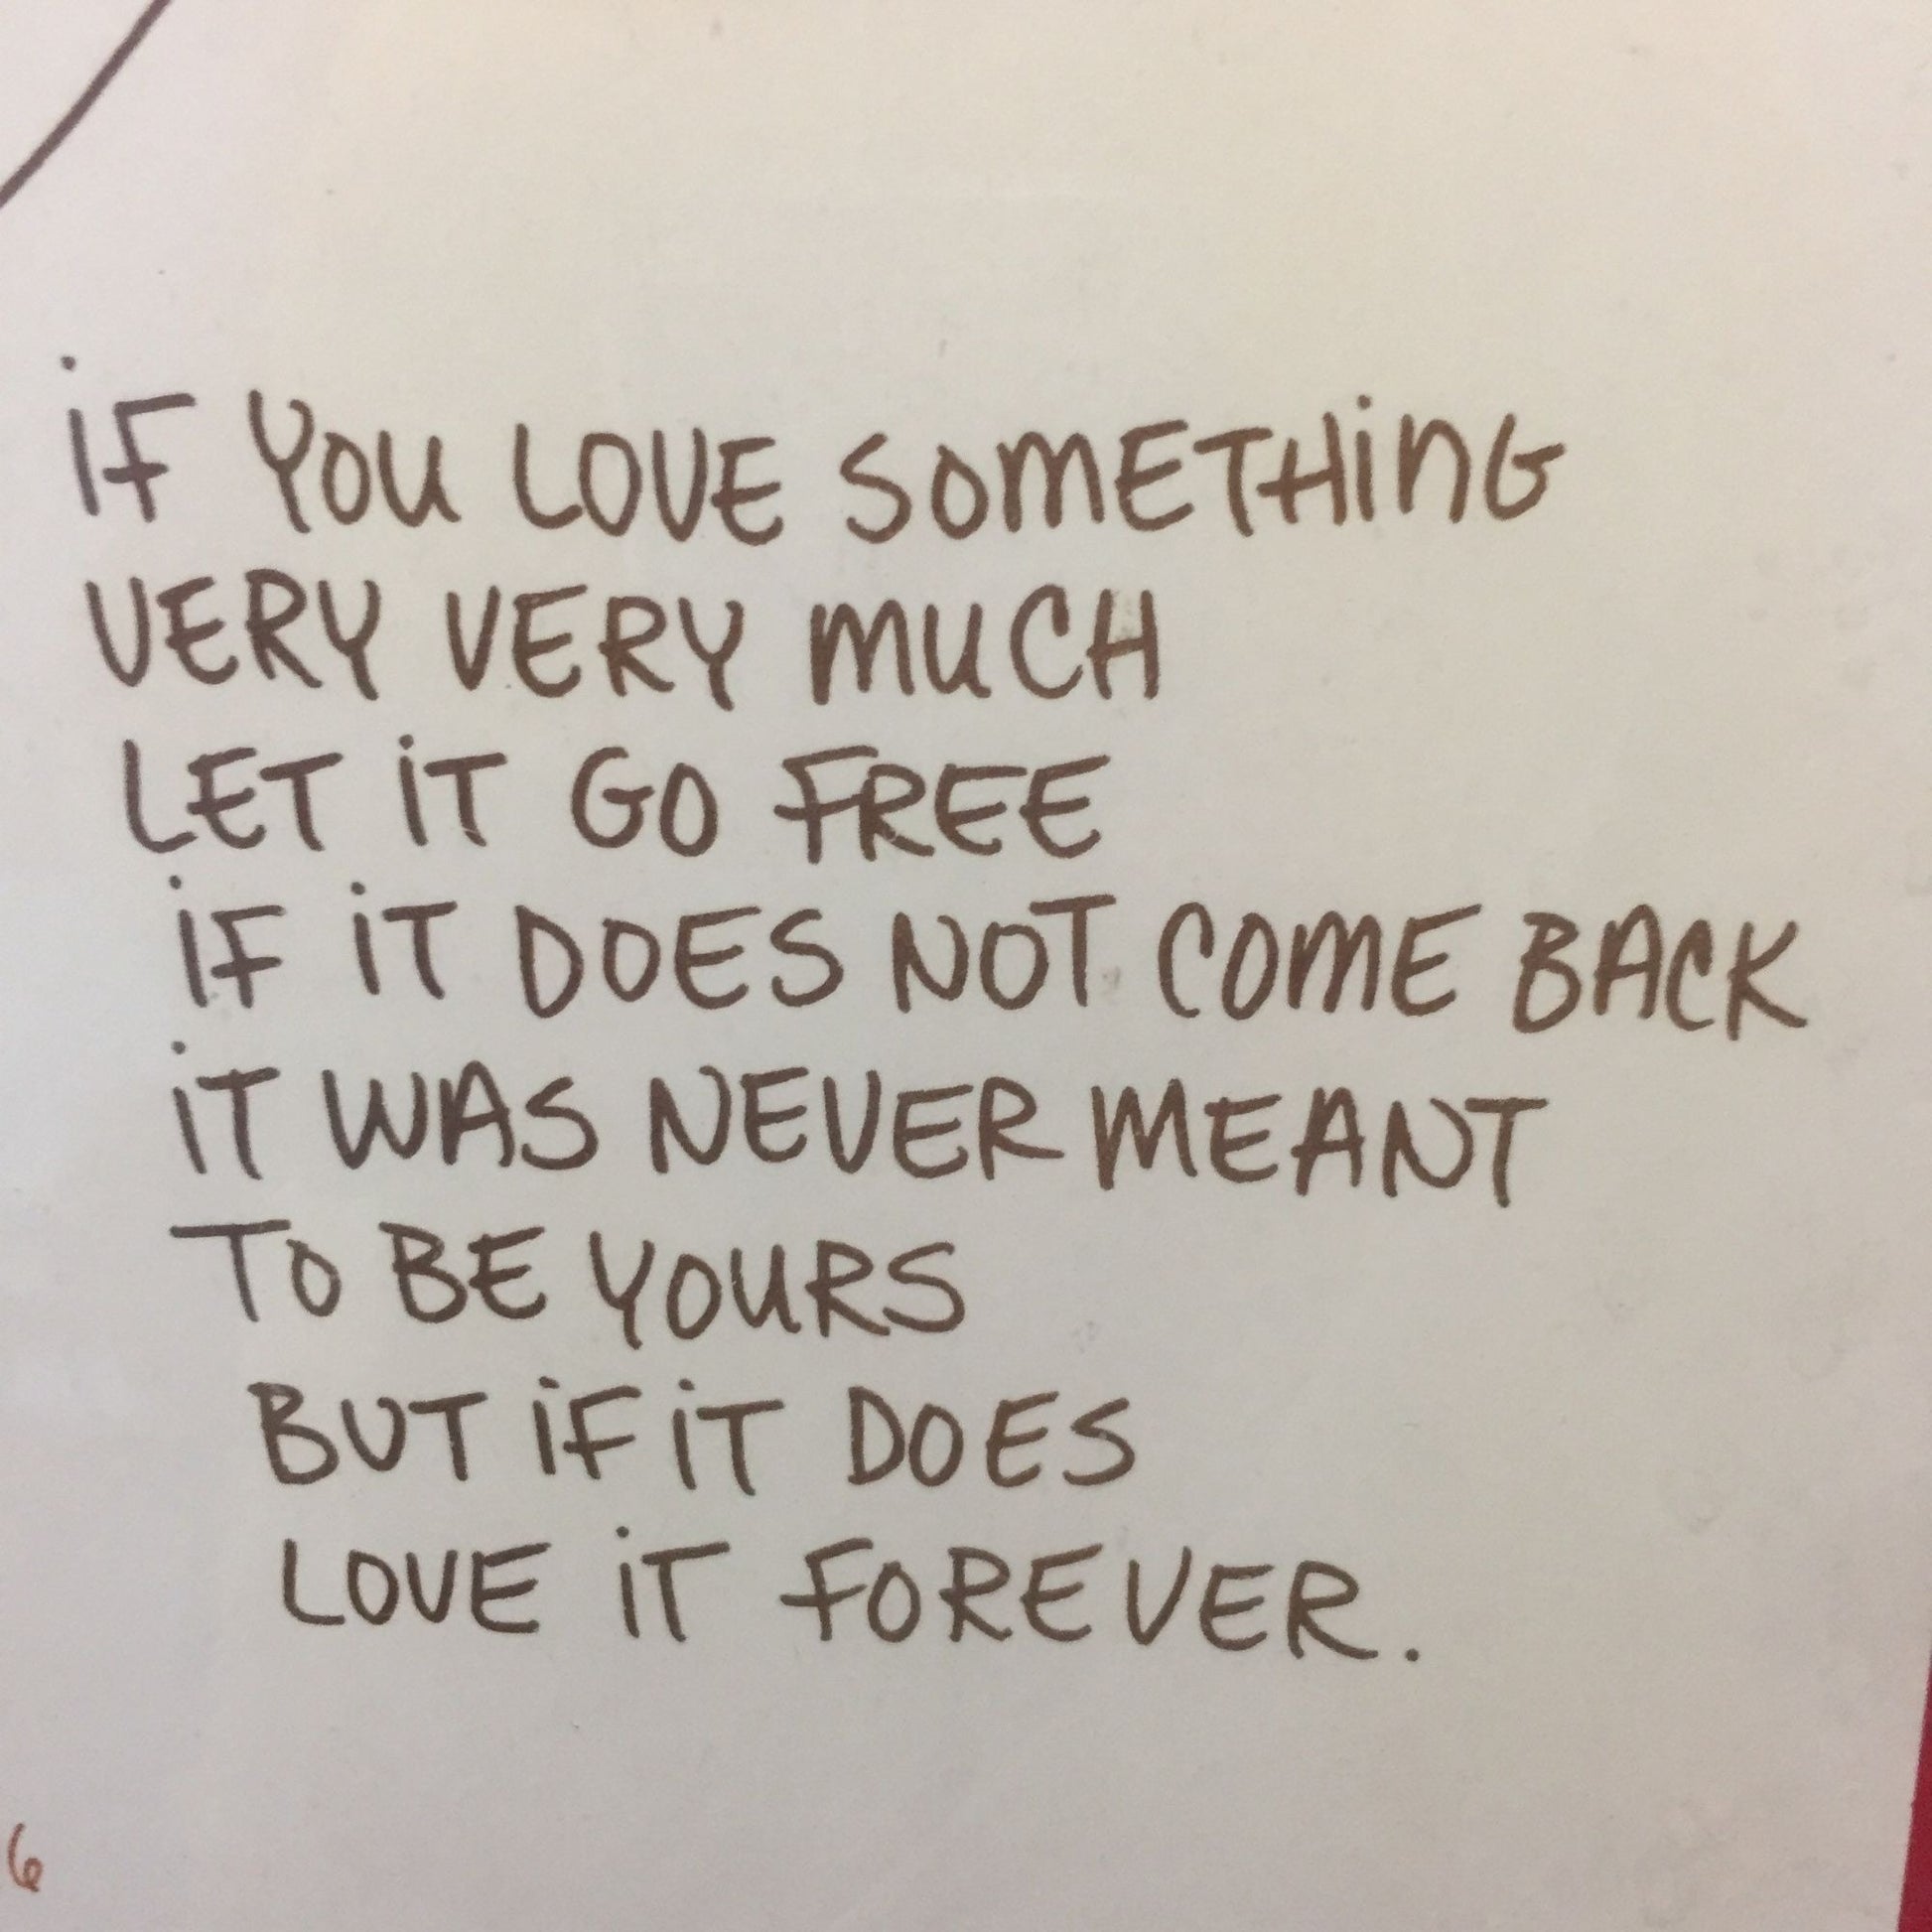 iF YOU LOVE SOMETHiNG
VERY VERY MUCH
LET iT GO FREE
iF iT DOES NOT COME BACK
iT WAS NEVER MEANT
TO BE YOURS
BUT iF iT DOES
LOVE iT FOREVER.
6